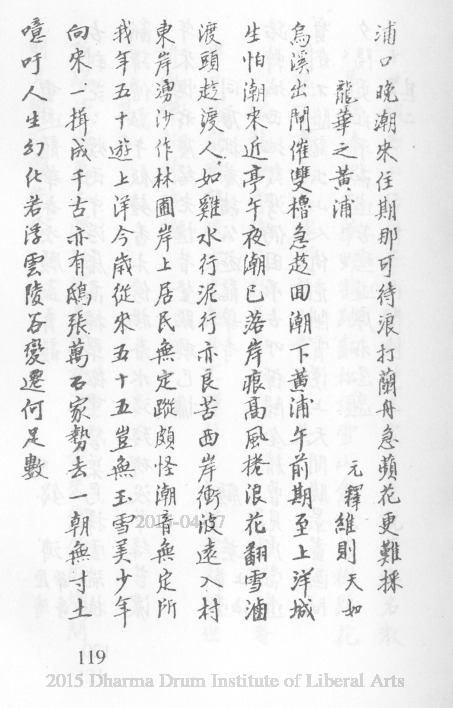 浦口晚潮來往期那可待浪打蘭舟急蘋花更難採
龍華之黃浦
元釋維則天如
烏溪出閘催雙櫓急趁回潮下黃浦午前期至上洋城
生怕潮來近亭午夜潮已落岸痕高風捲浪花翻雪滷
渡頭趁渡人如雞水行泥行亦良苦西岸衝波遠入村
東岸湧沙作林圃岸上居民無定蹤頗怪潮音無定所
我年五十遊上洋今歲從來五十五豈無玉雪美少年
向來一揖成千古亦有鴟張萬石家勢去一朝無寸土
噫吁人生幻化若浮雲陵谷變遷何足數
119
2015 Dharma Drum Institute of Liberal Arts